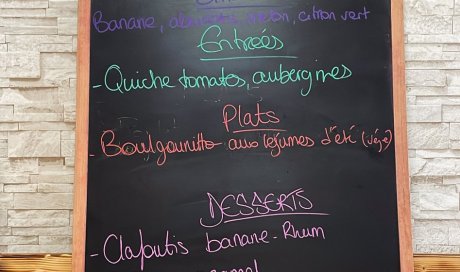 Banane, abricots, melon, citron vert
Entrées
- Quiche tomates, aubergines
Plats
- Boulgounitto aux légumes d'été (végé)
DESSERTS
- Clafoutis banane - Rhum